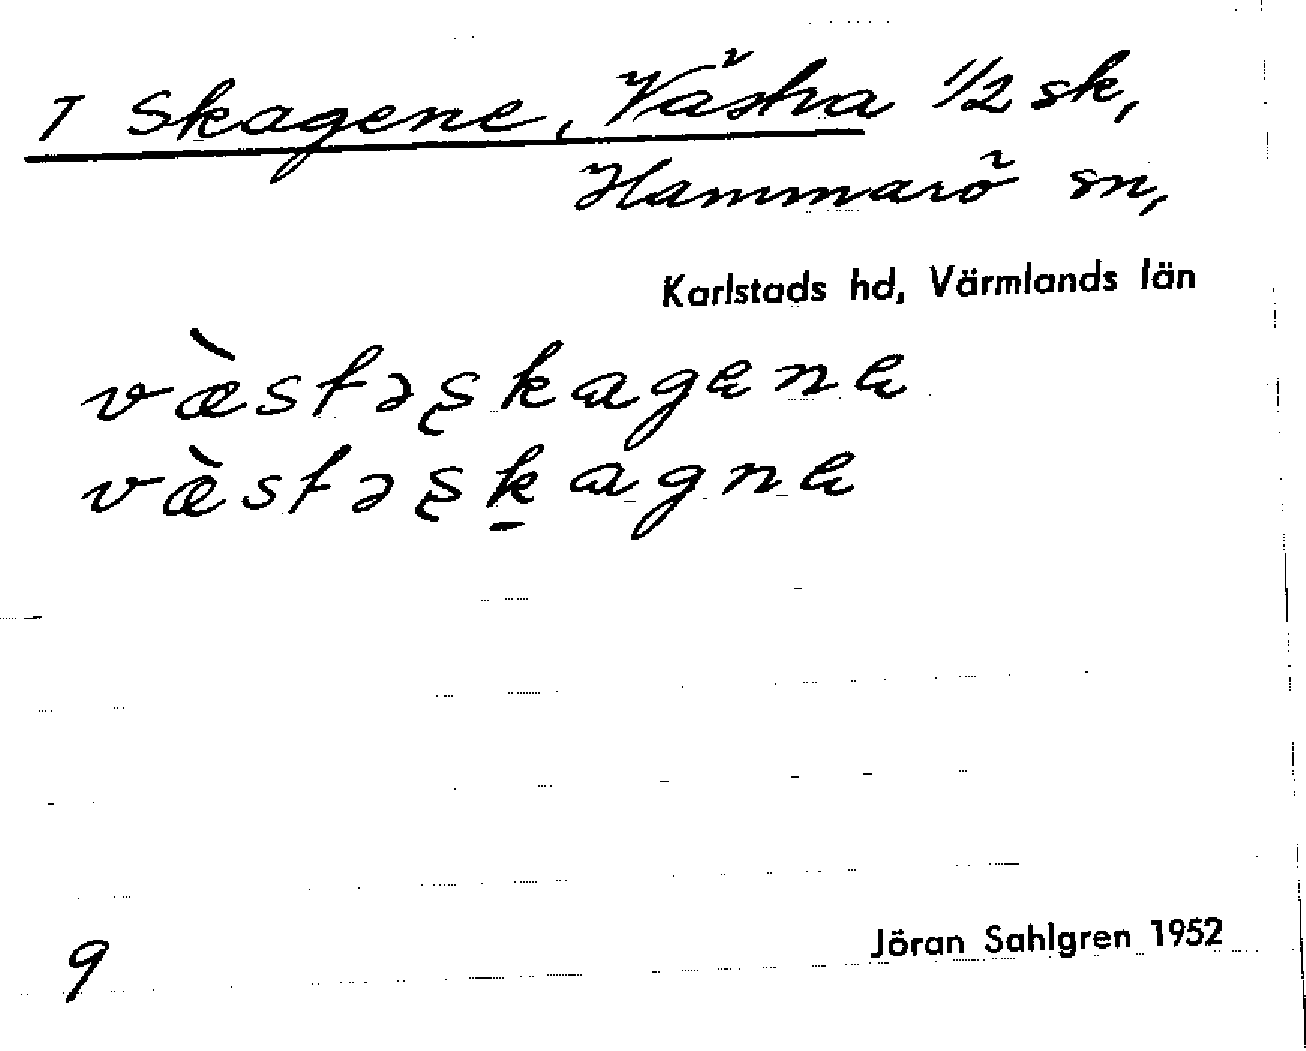 T Skagene, Västra 1/2 sk,
Hammarö sn,
Karlstads hd, Värmlands län
væ̀stəʂkagena
væ̀stəʂḵagna
9
Jöran Sahlgren 1952